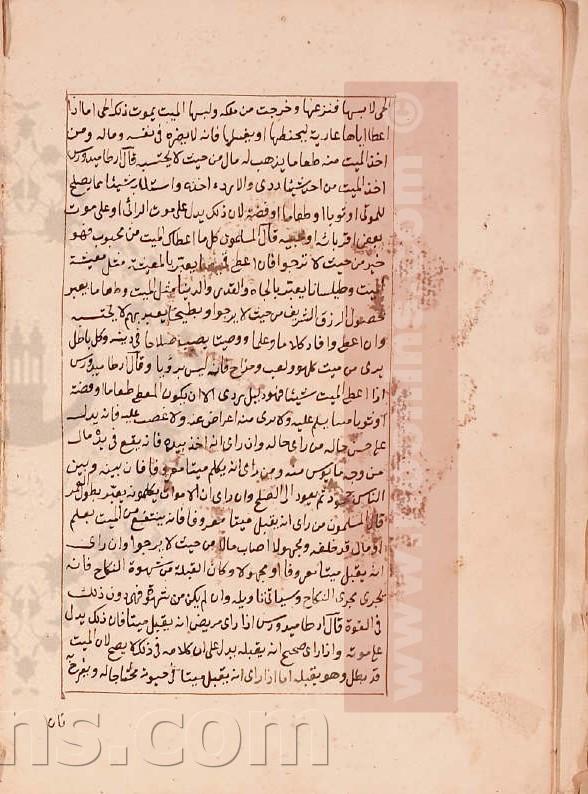 الحي لابسها فنزعها وخرجت من ملكه ولبسها الميت يموت ذلك الحي اما اذا
اعطا اياها عارية ليحفظها او يغسلها فانه لا يضره في نفسه وماله ومن
اخذ الميت منه طعاما يذهب له مال من حيث لا يحتسب قال ارطاميدورس
اخذ الميت من الحي شيئا ردي والابرد اخذه واستلابه شيئا مما يصلح
للموتى او ثوبا او طعاما او فضة لان ذلك يدل على موت الرائي او على موت
بعض اقربائه ومحبيه قال المسلمون كل ما اعطاك الميت من محبوب فهو
خير من حيث لا ترجوا فان اعطى يعتبر بالمعيشة مثل معيشة
الميت وطيلسانا يعتبر بالجاه والقدر والدنيا مثل الميت وطعاما يعبر
بحصول الرزق الشريف من حيث لا يرجوا وبطيخا يعبر بهم لا يحتسبه
وان اعطى وافاد كلاما وعلما ووصية يصيب صلاحا في دينه وكل باطل
يرى من ميت كلهو ولعب ومزاح فانه ليس برؤيا وقال ارطاميدورس
اذا اعطى الميت شيئا فهو دليل ردي الا ان يكون المعطى طعاما او فضة
او ثوبا مما يسلم عليه ولا يرى منه اعراض عنه ولا غضب عليه فانه يدل
على حسن حاله من راى حاله وان راى انه اخذ بيده فانه يقع في يده مال
من وجه مايوس منه ومن راى انه يكلم ميتا معروفا فان بينه وبين
الناس ثم يعود الى الصلح وان راى ان الاموات يكلمونه يعبر بطول العمر
قال المسلمون من راى انه يقبل ميتا معروفا فانه ينتفع من الميت بعلم
او مال قد خلفه ومجهولا اصاب مالا من حيث لا يرجوا وان راى
انه يقبل ميتا معروفا او مجهولا وكان القبلة من شهوة النكاح فانه
يجرى مجرى النكاح وسياتي تاويله وان لم يكن من شهوة فهي دون ذلك
في القوة قال ارطاميدورس اذا راى مريض انه يقبل ميتا فان ذلك يدل
على موته واذا راى صحيح انه يقبله يدل على ان كلامه في ذلك لا يصح لان الميت
قد بطل وهو يقبله اما اذا راى انه يقبل ميتا في حيوته محبا حاله
فان
ns.com